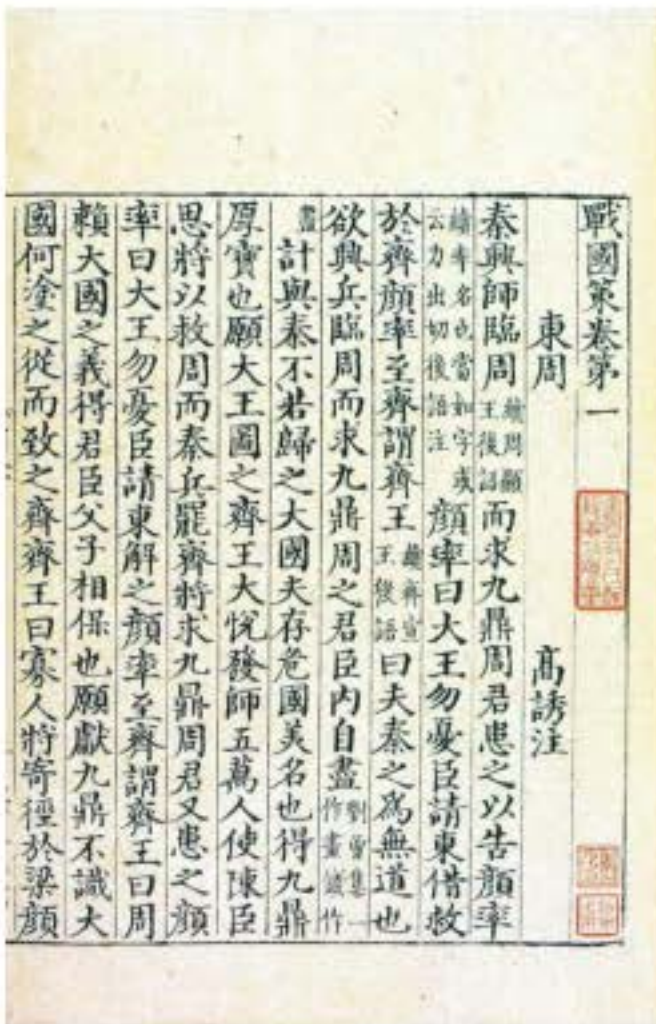 戰國策卷第一
東周 高誘注
秦興師臨周續周顯王後語而求九鼎周君患之以告顏率
續率名也當如字或云力出切後語注顏率曰大王勿憂臣請東借救
於齊顏率至齊謂齊王續齊宣王後語曰夫秦之為無道也
欲興兵臨周而求九鼎周之君臣內自盡劉曾集一作畫作
畫計與秦不若歸之大國夫存危國美名也得九鼎
厚寶也願大王圖之齊王大悅發師五萬人使陳臣
思將以救周而秦兵罷齊將求九鼎周君又患之顏
率曰大王勿憂臣請東解之顏率至齊謂齊王曰周
賴大國之義得君臣父子相保也願獻九鼎不識大
國何塗之從而致之齊齊王曰寡人將寄徑於梁顏